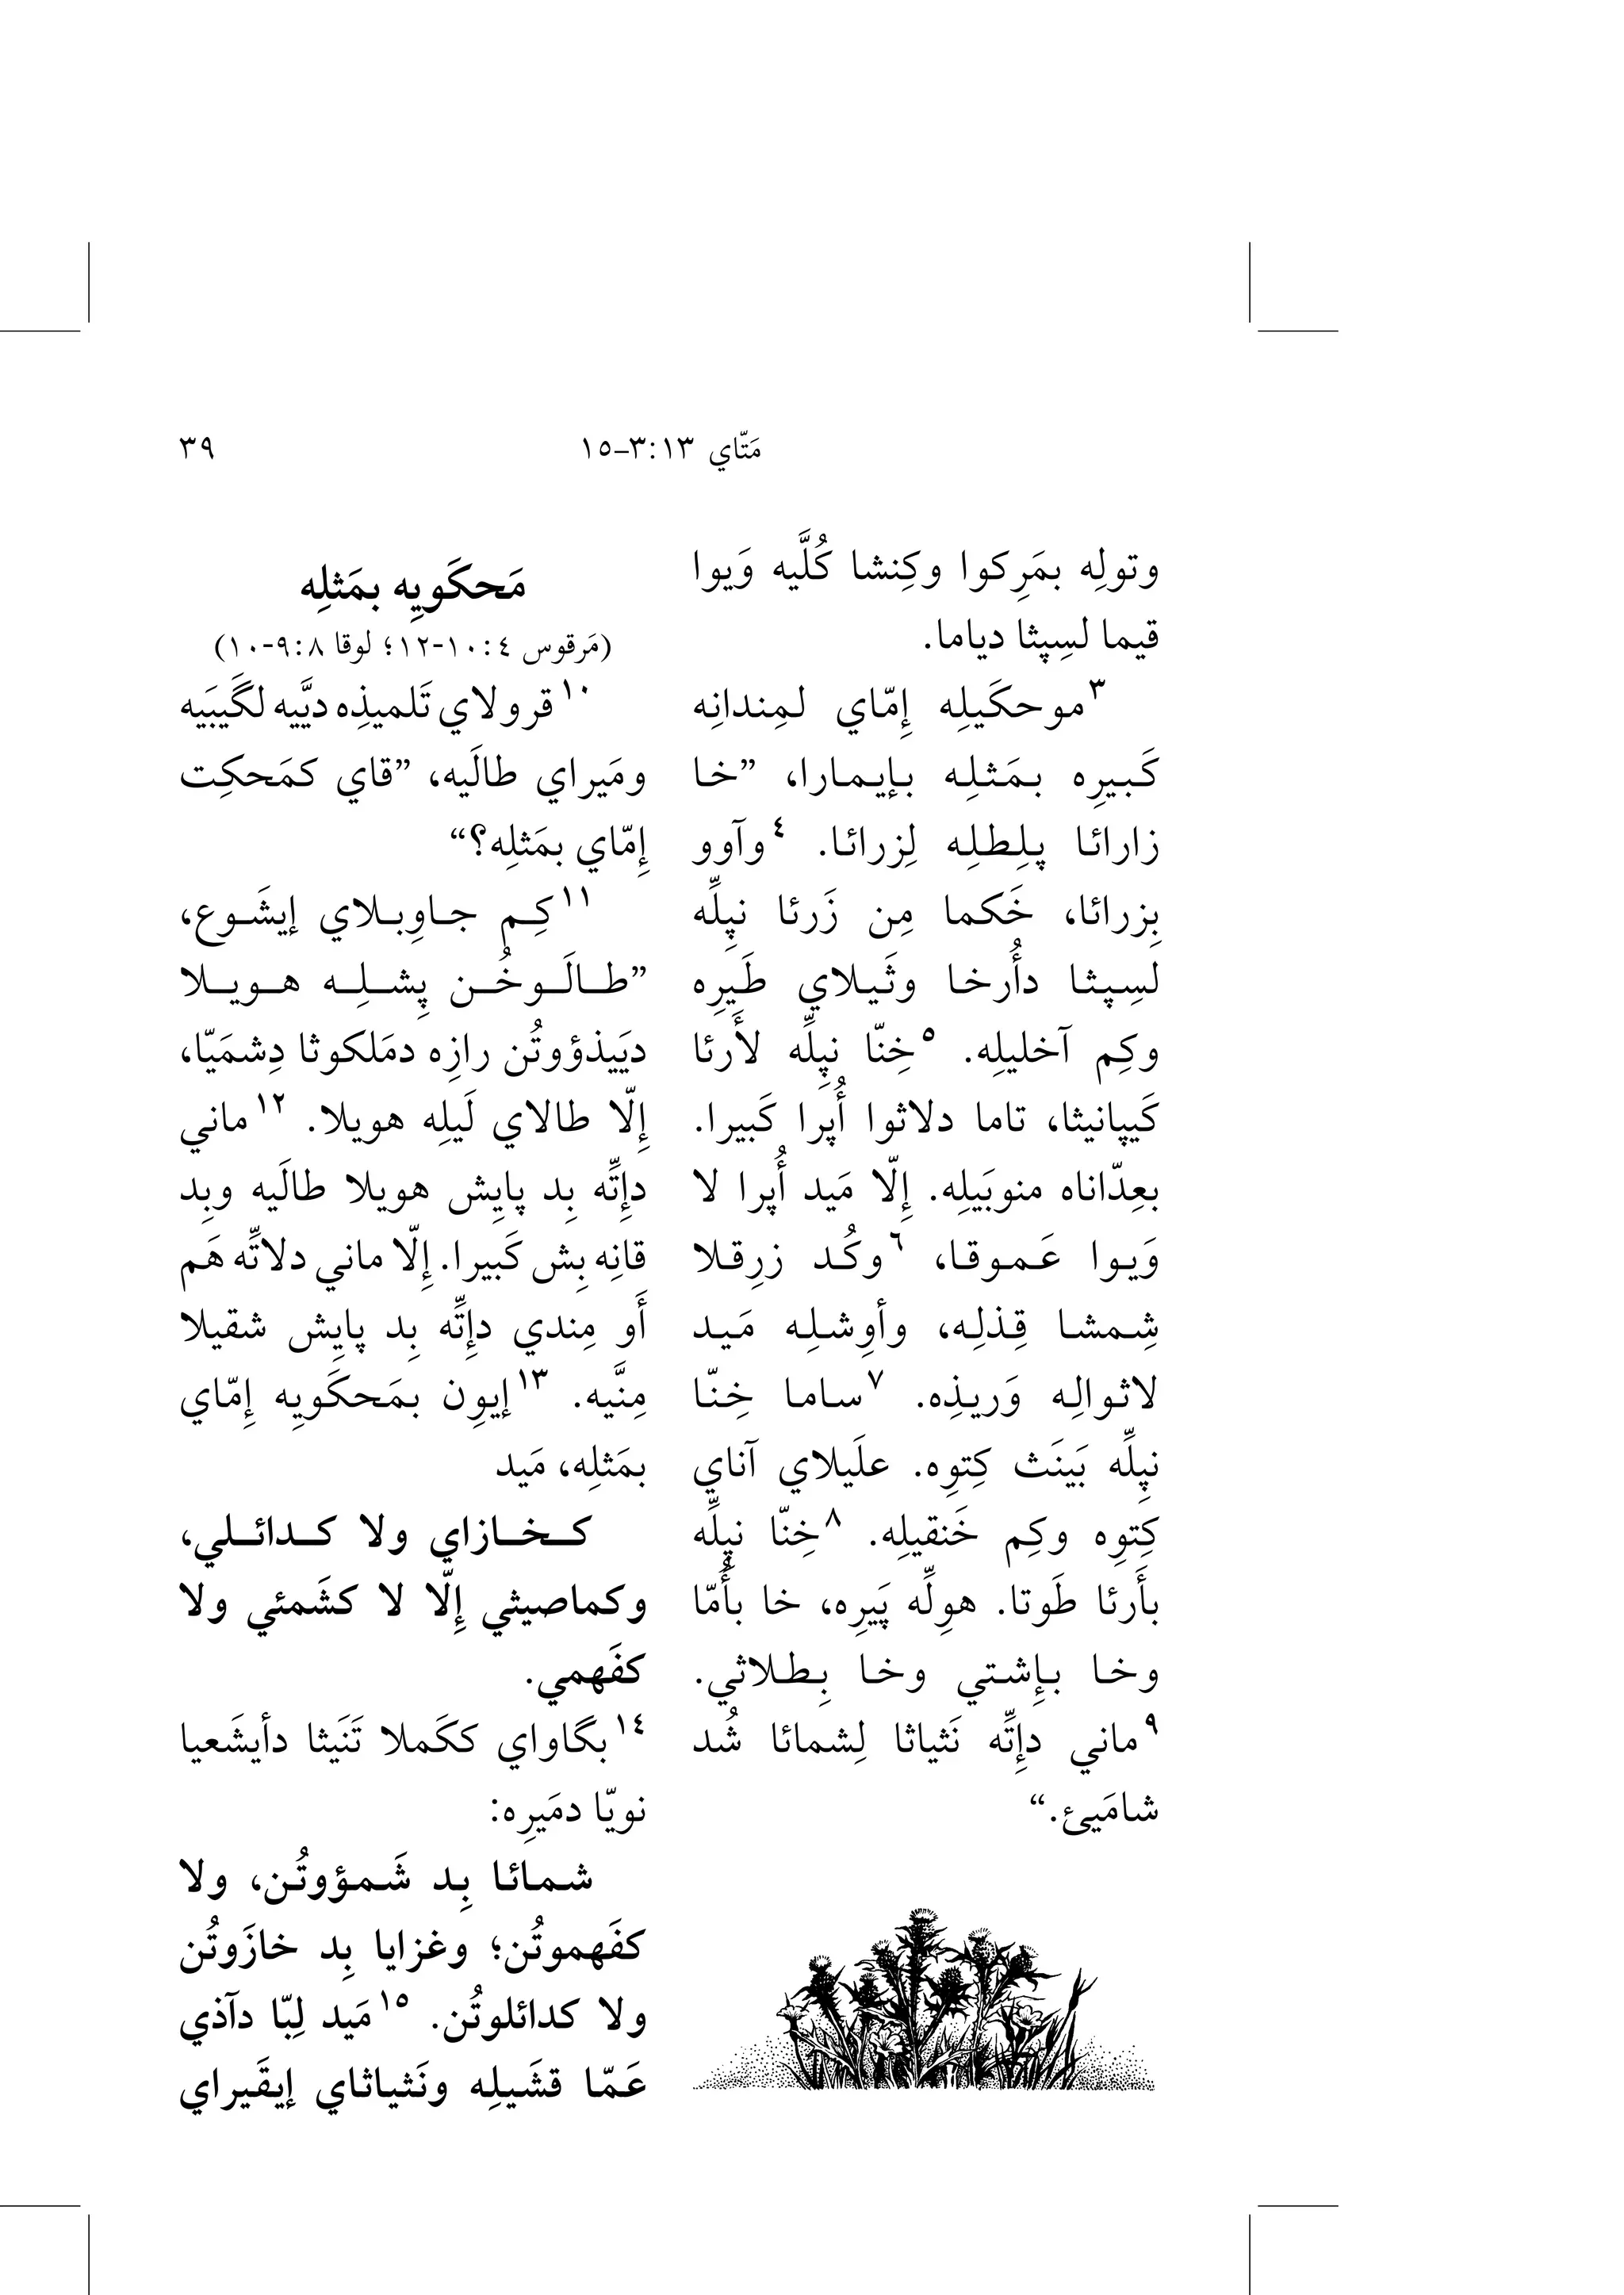 مَتّاي ٣:١٣-١٥
٣٩
وتولِه بمَرِكوا وكِنشا كُلَّيه وَيوا
قيما لسِپثا دياما.
٣موحكَيلِه إِمّاي لمِندانِه
كَبيرِه بمَثلِه بإيمارا، ”خا
زارائا پلِطلِه لِزرائا. ٤وآوو
بِزرائا، خَكما مِن زَرئا نپِلِّه
لسِپثا دأُرخا وثَيلاي طَيرِه
وكِم آخليلِه. ٥خِنّا نپِلِّه لأَرئا
كَيپانيثا، تاما دلاثوا أُپرا كَبيرا.
بعِدّاناه منوبَيلِه. إِلّا مَيد أُپرا لا
وَيوا عَموقا، ٦وكُد زرِقلا
شِمشا قِذلِه، وأوِشلِه مَيد
لاثوالِه وَريذِه. ٧ساما خِنّا
نپِلِّه بَينَث كِتوِه. علَيلاي آناي
كِتوِه وكِم خَنقيلِه. ٨خِنّا نپِلِّه
بأَرئا طَوتا. هوِلِّه پَيرِه، خا بأُمّا
وخا بإِشتي وخا بِطلاثي.
٩ماني دإِتِّه نَثياثا لِشمائا شُد
شامَيئ.“
مَحكَويِه بمَثلِه
(مَرقوس ٤:١٠-١٢؛ لوقا ٨:٩-١٠)
١٠قرولاي تَلميذِه ديَّيه لگَيبَيه
ومَيراي طالَيه، ”قاي كمَحكِت
إِمّاي بمَثلِه؟“
١١كِم جاوِبلاي إيشَوع،
”طالَوخُن پِشلِه هويلا
ديَيذؤوتُن رازِه دمَلكوثا دِشمَيّا،
إِلّا طالاي لَيلِه هويلا. ١٢ماني
دإِتِّه بِد پايِش هويلا طالَيه وبِد
قانِه بِش كَبيرا. إِلّا ماني دلاتِّه هَم
أَو مِندي دإِتِّه بِد پايِش شقيلا
مِنَّيه. ١٣إيوِن بمَحكَويِه إِمّاي
بمَثلِه، مَيد
كخازاي ولا كدائلي،
وكماصيثي إِلّا لا كشَمئي ولا
كفَهمي.
١٤بگاواي ككَملا تَنَيثا دأيشَعيا
نويّا دمَيرِه:
شمائا بِد شَمؤوتُن، ولا
كفَهموتُن؛ وغزايا بِد خازَوتُن
ولا كدائلوتُن. ١٥مَيد لِبّا دآذي
عَمّا قشَيلِه ونَثياثاي إيقَيراي